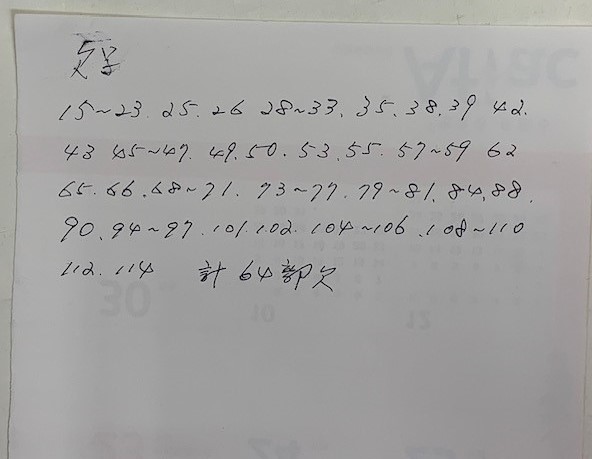 欠号
15~23. 25. 26 28~33. 35. 38. 39 42.
43 45~47. 49. 50. 53. 55. 57~59 62
65. 66. 68~71. 73~77. 79~81. 84. 88.
90. 94~97. 101. 102. 104~106. 108~110
112. 114 計 64部欠
Aflac
30
10
12